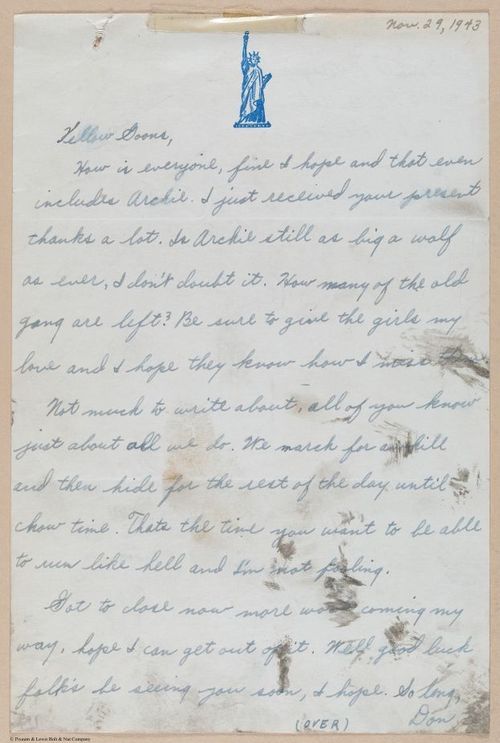 Nov. 29, 1943
Fellow Goons,
How is everyone, fine I hope and that even
includes Archie. I just received your present
thanks a lot. Is Archie still as big a wolf
as ever, I don't doubt it. How many of the old
gang are left? Be sure to give the girls my
love and I hope they know how I miss them
Not much to write about, all of you know
just about all we do. We march for a
and then hide for the rest of the day until
chow time. Thats the time you want to be able
to run like hell and I'm not fooling.
Got to close now more work coming my
way, hope I can get out of it. Well good luck
folk's be seeing you soon, I hope. So long,
Don
(OVER)
© Pennsm & Lewis Bolt & Nut Company